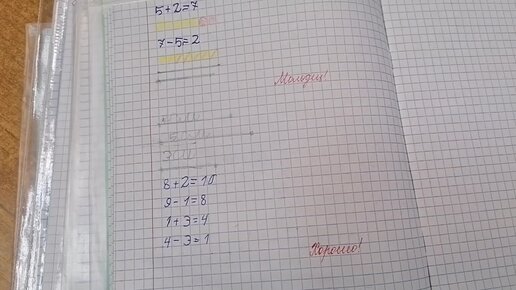 5+2=7
7-5=2
Молодец!
8+2=10
9-1=8
1+3=4
4-3=1
Хорошо!